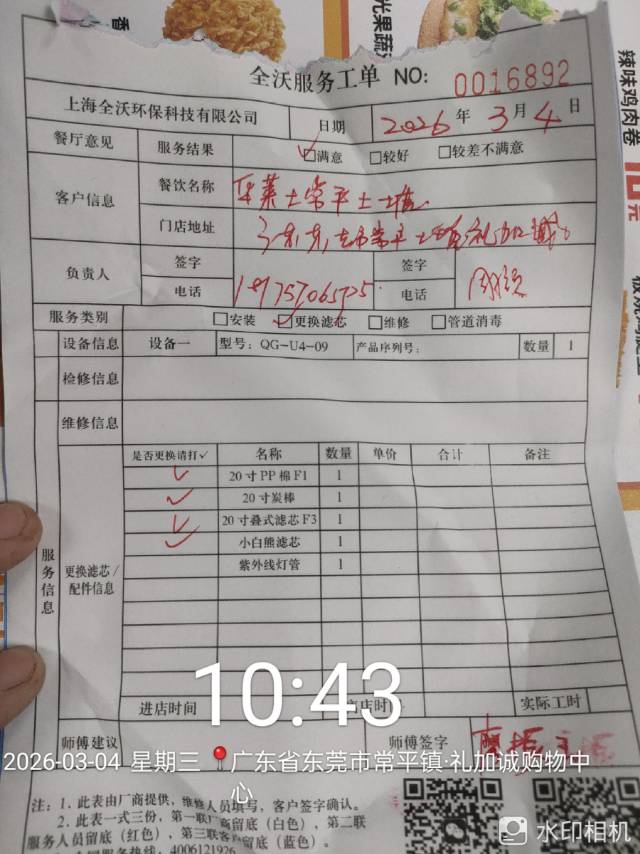 香
光果蔬
辣味鸡肉卷
元
全沃服务工单 NO: 0016892
上海全沃环保科技有限公司 日期 2026年3月4日
餐厅意见 服务结果 ☑满意 □较好 □较差不满意
客户信息 餐饮名称
门店地址
负责人 签字 签字
电话 电话
服务类别 □安装 ☑更换滤芯 □维修 □管道消毒
设备信息 设备一 型号：QG-U4-09 产品序列号： 数量 1
检修信息
维修信息
服务信息
更换滤芯/配件信息
是否更换请打✓ 名称 数量 单价 合计 备注
✓ 20寸PP棉F1 1
✓ 20寸炭棒 1
✓ 20寸叠式滤芯F3 1
✓ 小白熊滤芯 1
紫外线灯管 1
10:43
进店时间 店时 实际工时
师傅建议 师傅签字
2026-03-04 星期三 📍广东省东莞市常平镇·礼加诚购物中心
注：1. 此表由厂商提供，维修人员填写，客户签字确认。
2. 此表一式三份，第一联厂商留底（白色），第二联
服务人员留底（红色），第三联客户留底（蓝色）。
服务热线：4006121926
水印相机